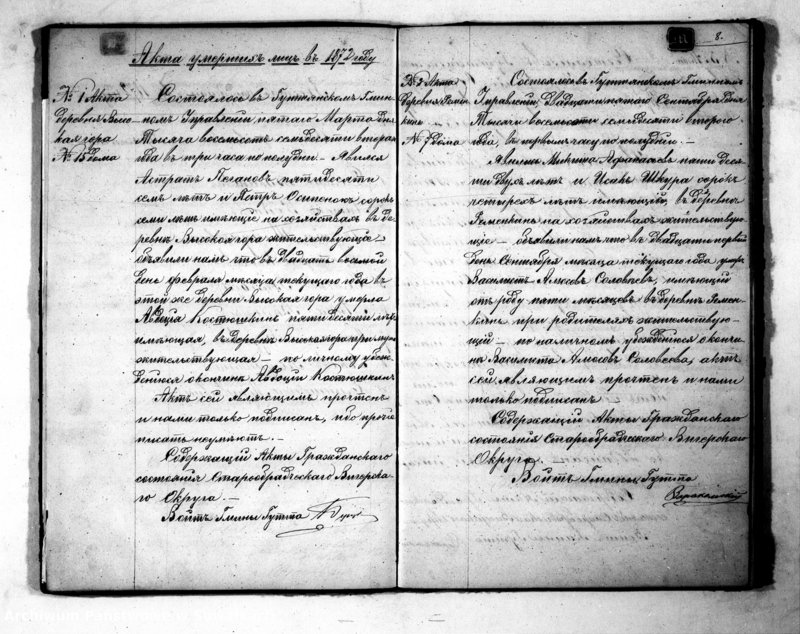 Акта умершихъ лицъ въ 1872 году
№ 1 Акта
деревня Высо-
кая гора
№ 15 дома
Состоялось въ Гуттянскомъ Гмин-
номъ Управленіи пятаго Марта дня
Тысяча восемьсотъ семьдесятъ втораго
года въ три часа по полудни. — Явился
Астратъ пятидесяти
семъ лѣтъ и Петръ Осипенокъ сорокъ
семи лѣтъ имѣющіе на хозяйствахъ въ де-
ревнѣ Высокая гора жительствующіе —
объявили намъ что въ двадцать восьмой
день февраля мѣсяца текущаго года въ
этой же деревни Высокая гора умерла
Авдоція Костюшкинъ пятидесяти лѣтъ
имѣющая, въ деревни Высокая гора при
жительствующая — по личному убеж-
деніюся окончина Авдоціи Костюшкинъ
Актъ сей являющимъ прочтенъ
и нами только подписанъ, ибо прочіе
писать неумѣютъ. —
Содержащій Акты Гражданскаго
состоянія Старообрядческаго Вигерска-
го Округа. —
Войтъ Гмины Гутта
8.
№ 2 Акта
деревня Ремен-
кинь
№ 7 дома
Состоялось въ Гуттянскомъ Гминномъ
Управленіи, двадцать пятаго Сентября дня
Тысяча восемьсотъ семьдесятъ второго
года, въ первомъ часу по полудни. —
Явились Микита Афанасьевъ пятидеся-
ти двухъ лѣтъ и Исакъ Шкура сорокъ
четырехъ лѣтъ имѣющій, въ деревни
Ременкинь на хозяйствахъ жительствую-
щіе — объявили намъ что въ двадцать первый
день Сентября мѣсяца текущаго года умеръ
Василистъ Амосевъ Соловьевъ, имѣющій
отъ роду пяти мѣсяцевъ въ деревни Ремен-
кинь при родителяхъ жительствую-
щій — по наличномъ убежденіюся окончи-
на Василиста Амосевъ Соловьева, актъ
сей являющимъ прочтенъ и нами
только подписанъ
Содержащій Акты Гражданскаго
состоянія Старообрядческаго Вигерскаго
Округа
Войтъ Гмины Гутта
Archiwum Państwowe w Suwałkach